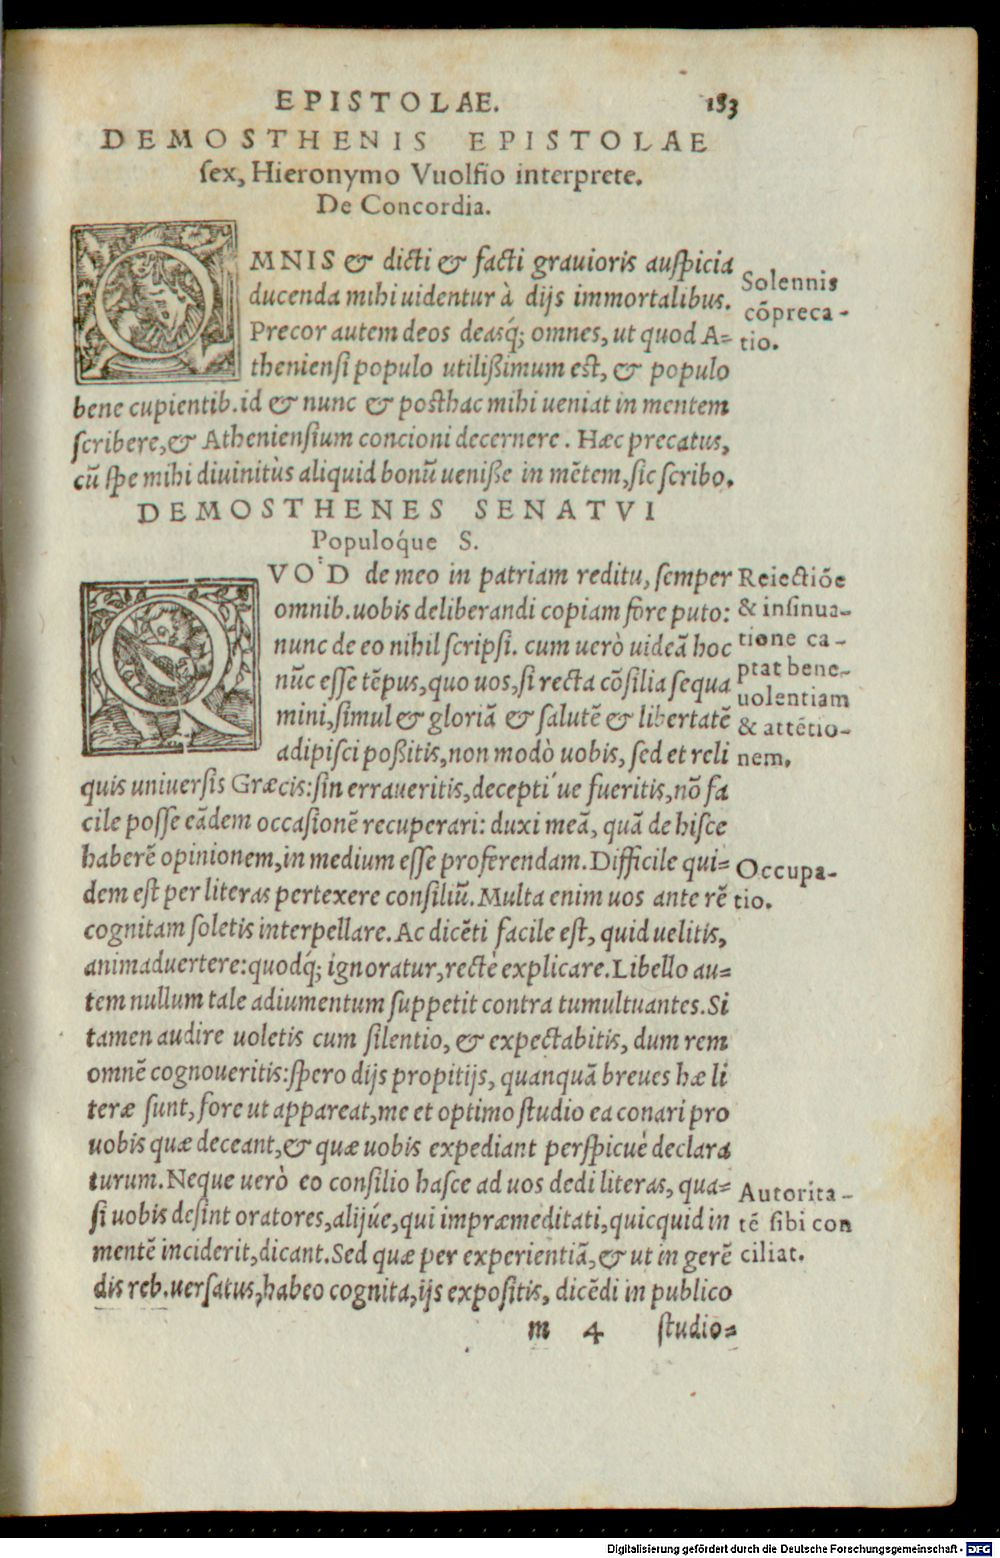 EPISTOLAE. 183
DEMOSTHENIS EPISTOLAE
ſex, Hieronymo Vuolfio interprete.
De Concordia.
OMNIS & dicti & facti grauioris auſpicia
ducenda mihi uidentur à dijs immortalibus.
Precor autem deos deasq́; omnes, ut quod A=
thenienſi populo utilißimum eſt, & populo
bene cupientib. id & nunc & poſthac mihi ueniat in mentem
ſcribere, & Athenienſium concioni decernere. Hæc precatus,
cũ ſpe mihi diuinitùs aliquid bonũ ueniſſe in mẽtem, ſic ſcribo.
Solennis
cõpreca-
tio.
DEMOSTHENES SENATVI
Populoq́ue S.
QVO'D de meo in patriam reditu, ſemper
omnib. uobis deliberandi copiam fore puto:
nunc de eo nihil ſcripſi. cum uerò uideã hoc
nũc eſſe tẽpus, quo uos, ſi recta cõſilia ſequa
mini, ſimul & gloriã & ſalutẽ & libertatẽ
adipiſci poßitis, non modò uobis, ſed et reli
quis uniuerſis Græcis: ſin erraueritis, decepti´ue fueritis, nõ fa
cile poſſe eãdem occaſionẽ recuperari: duxi meã, quã de hiſce
haberẽ opinionem, in medium eſſe proferendam. Difficile qui=
dem eſt per literas pertexere conſiliũ. Multa enim uos ante rẽ
cognitam ſoletis interpellare. Ac dicẽti facile eſt, quid uelitis,
animaduertere: quodq́; ignoratur, rectè explicare. Libello au=
tem nullum tale adiumentum ſuppetit contra tumultuantes. Si
tamen audire uoletis cum ſilentio, & expectabitis, dum rem
omnẽ cognoueritis: ſpero dijs propitijs, quanquã breues hæ li
teræ ſunt, fore ut appareat, me et optimo ſtudio ea conari pro
uobis quæ deceant, & quæ uobis expediant perſpicuè declara
turum. Neque uerò eo conſilio haſce ad uos dedi literas, qua=
ſi uobis deſint oratores, alijúe, qui impræmeditati, quicquid in
mentẽ inciderit, dicant. Sed quæ per experientiã, & ut in gerẽ
dis reb. uerſatus, habeo cognita, ijs expoſitis, dicẽdi in publico
Reiectiõe
& inſinua-
tione ca-
ptat bene-
uolentiam
& attẽtio-
nem.
Occupa-
tio.
Autorita-
tẽ ſibi con
ciliat.
m 4 ſtudio=
Digitalisierung gefördert durch die Deutsche Forschungsgemeinschaft - DFG